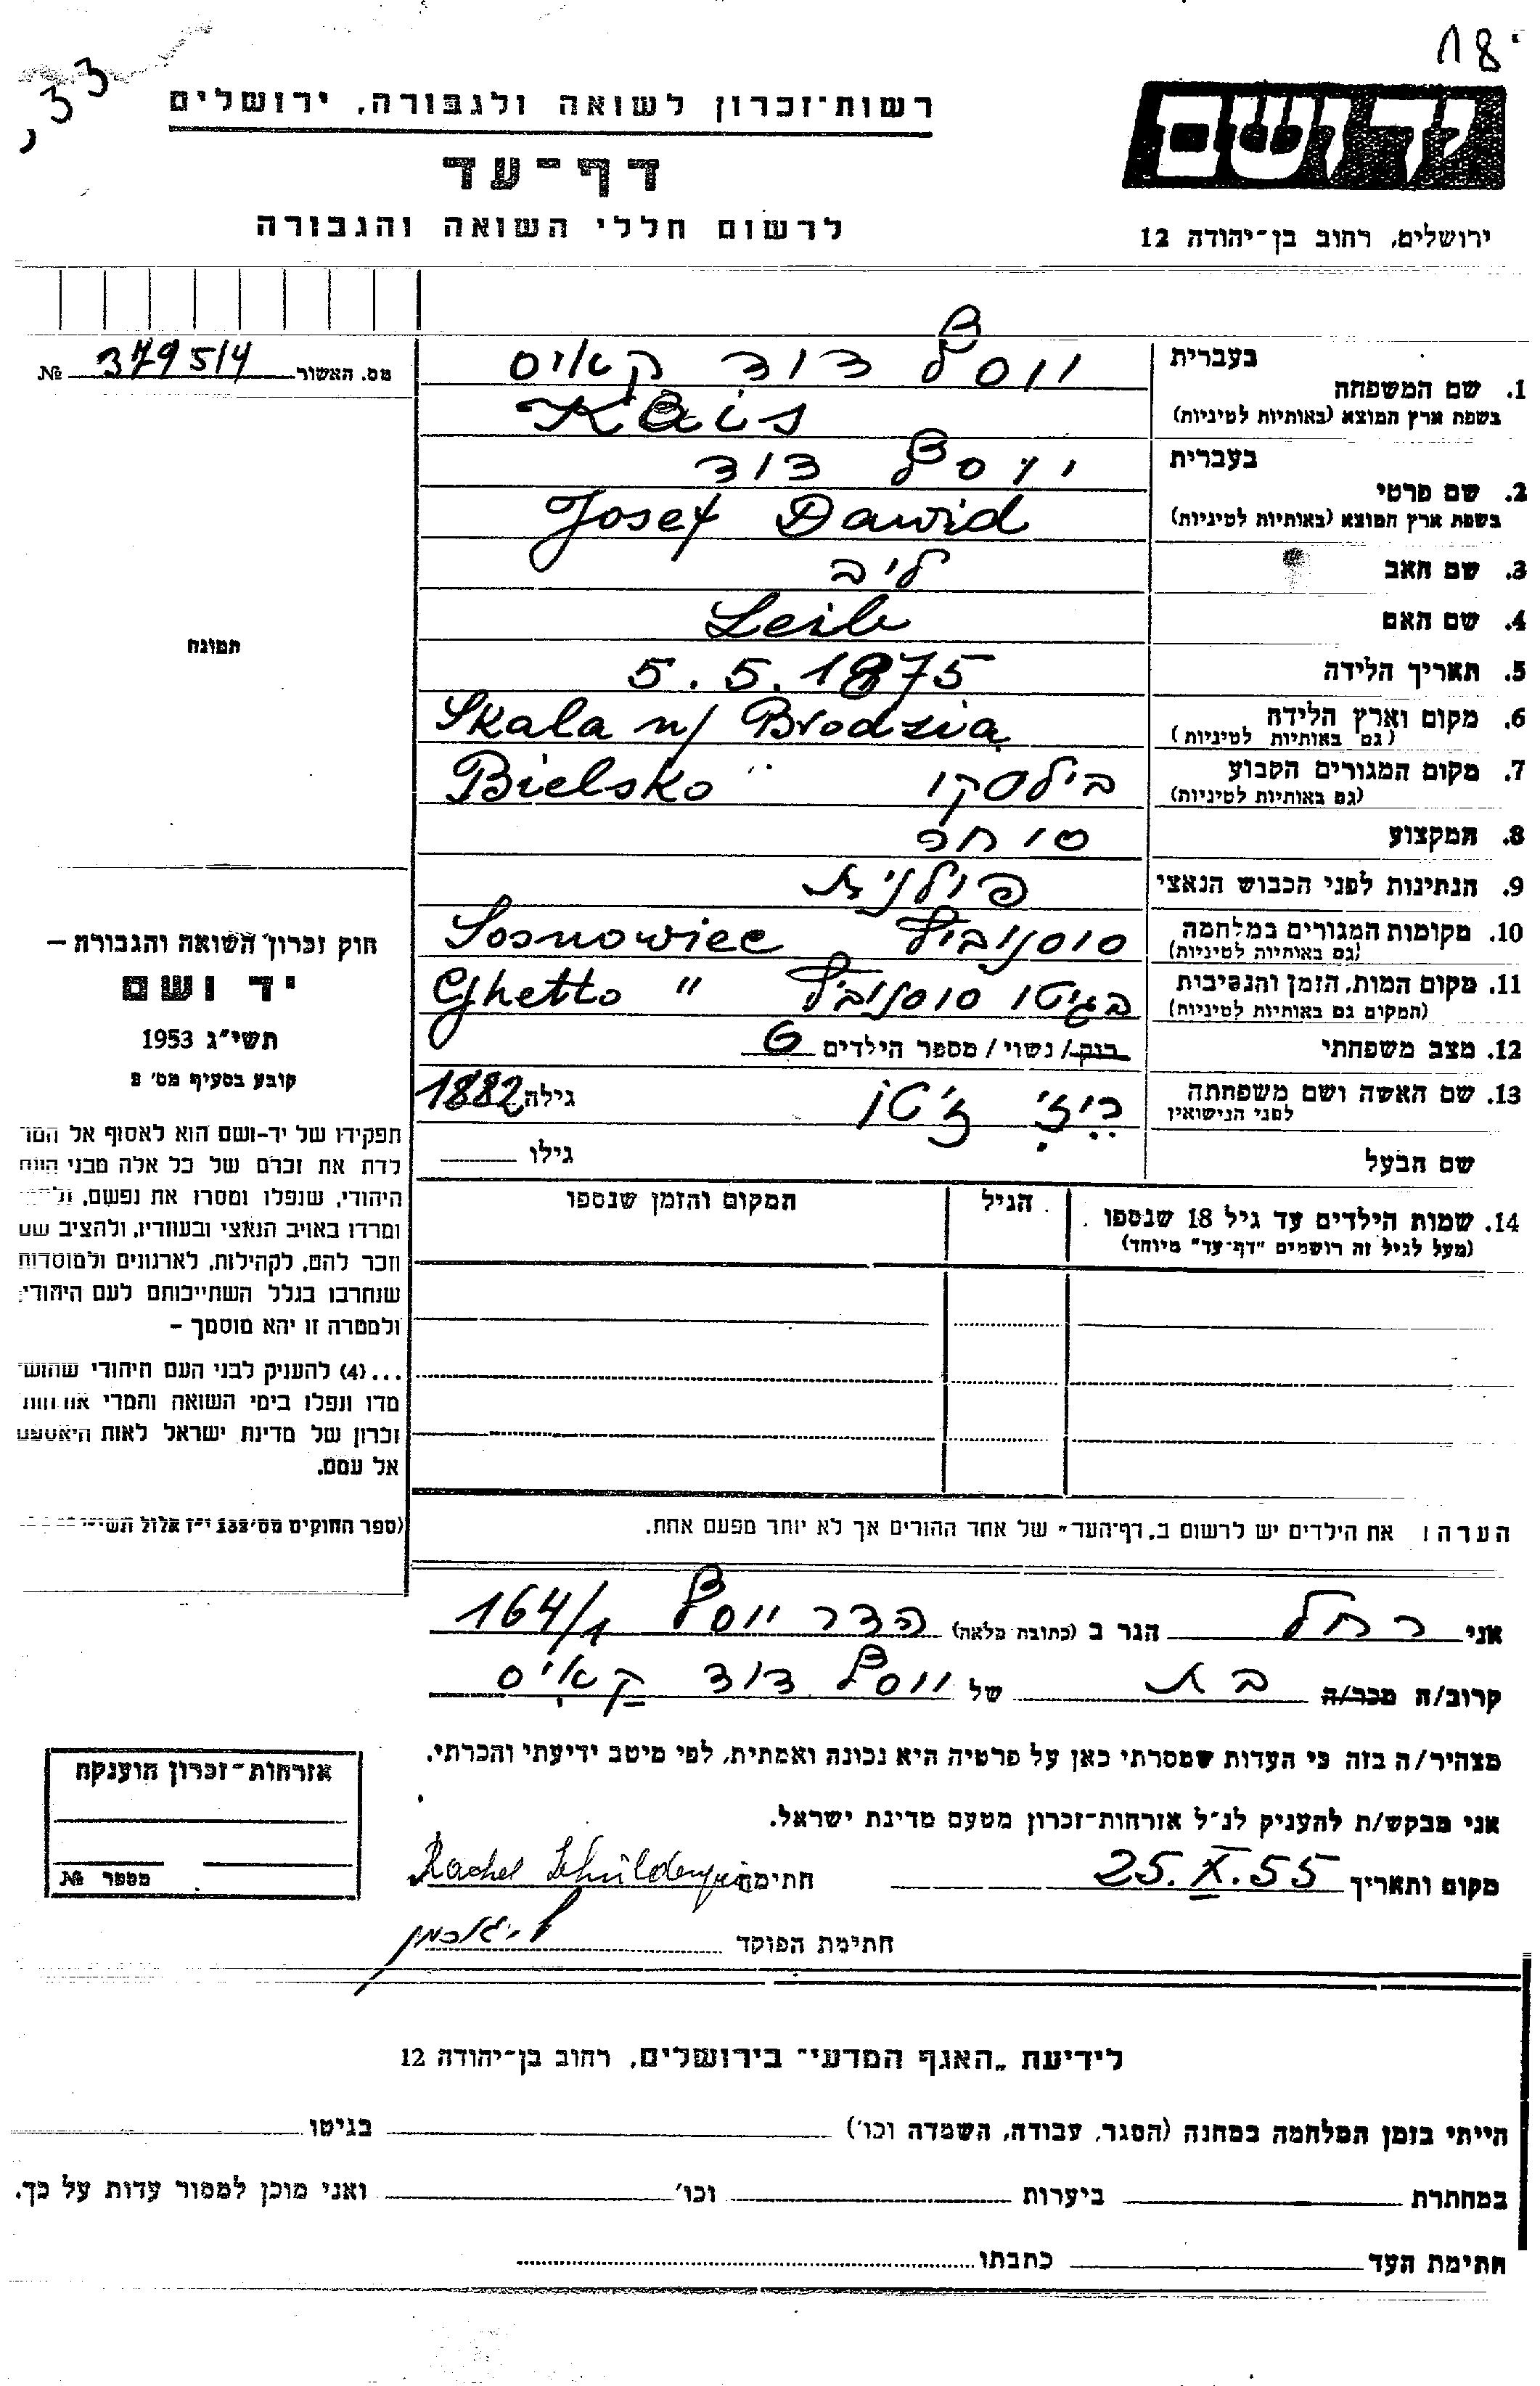 18
33
ידושם
רשות־זכרון לשואה ולגבורה, ירושלים
דף־עד
לרשום חללי השואה והגבורה
ירושלים, רחוב בן־יהודה 12
מס. האשור 379514 №
1. שם המשפחה
בעברית יוסף דוד קאיס
בשפת ארץ המוצא (באותיות לטיניות) Kais
2. שם פרטי
בעברית יוסף דוד
בשפת ארץ המוצא (באותיות לטיניות) Josef Dawid
3. שם האב ליב
4. שם האם Leib
5. תאריך הלידה 5.5.1875
6. מקום וארץ הלידה Skala n/ Brodzia
(גם באותיות לטיניות)
7. מקום המגורים הקבוע בילסקו Bielsko
(גם באותיות לטיניות)
8. המקצוע סוחר
9. הנתינות לפני הכבוש הנאצי פולנית
10. מקומות המגורים במלחמה סוסנוביץ Sosnowiec
(גם באותיות לטיניות)
11. מקום המות, הזמן והנסיבות בגיטו סוסנוביץ Ghetto "
(המקום גם באותיות לטיניות)
12. מצב משפחתי רוק/נשוי/מספר הילדים 6
13. שם האשה ושם משפחתה
לפני הנישואין גילה 1882
שם הבעל גילו
14. שמות הילדים עד גיל 18 שנספו הגיל המקום והזמן שנספו
(מעל לגיל זה רושמים "דף־עד" מיוחד)
הערה: את הילדים יש לרשום ב„דף־העד" של אחד ההורים אך לא יותר מפעם אחת.
תמונה
חוק זכרון השואה והגבורה –
יד ושם
תשי״ג 1953
קובע בסעיף מס׳ 2
תפקידו של יד-ושם הוא לאסוף אל המו
לדת את זכרם של כל אלה מבני העם
היהודי, שנפלו ומסרו את נפשם,
ומרדו באויב הנאצי ובעוזריו, ולהציב שם
וזכר להם, לקהילות, לארגונים ולמוסדות
שנחרבו בגלל השתייכותם לעם היהודי;
ולמטרה זו יהא מוסמך –
...(4) להעניק לבני העם היהודי שהוש
מדו ונפלו בימי השואה והמרי אזרחות
זכרון של מדינת ישראל לאות היאספם
אל עמם.
(ספר החוקים מס׳ 132 י״ז אלול
אני רחל הגר ב (כתובת מלאה) הדר יוסף 164/1
קרוב/ה מכר/ה בת של יוסף דוד קאיס
מצהיר/ה בזה כי העדות שמסרתי כאן על פרטיה היא נכונה ואמתית, לפי מיטב ידיעתי והכרתי.
אני מבקש/ת להעניק לנ״ל אזרחות־זכרון מטעם מדינת ישראל.
מקום ותאריך 25.X.55 חתימה Rachel
חתימת הפוקד
אזרחות־זכרון הוענקה
מספר №
לידיעת „האגף המדעי" בירושלים, רחוב בן־יהודה 12
הייתי בזמן המלחמה במחנה (הסגר, עבודה, השמדה וכו׳) בגיטו
במחתרת ביערות וכו׳ ואני מוכן למסור עדות על כך.
חתימת העד כתבתו